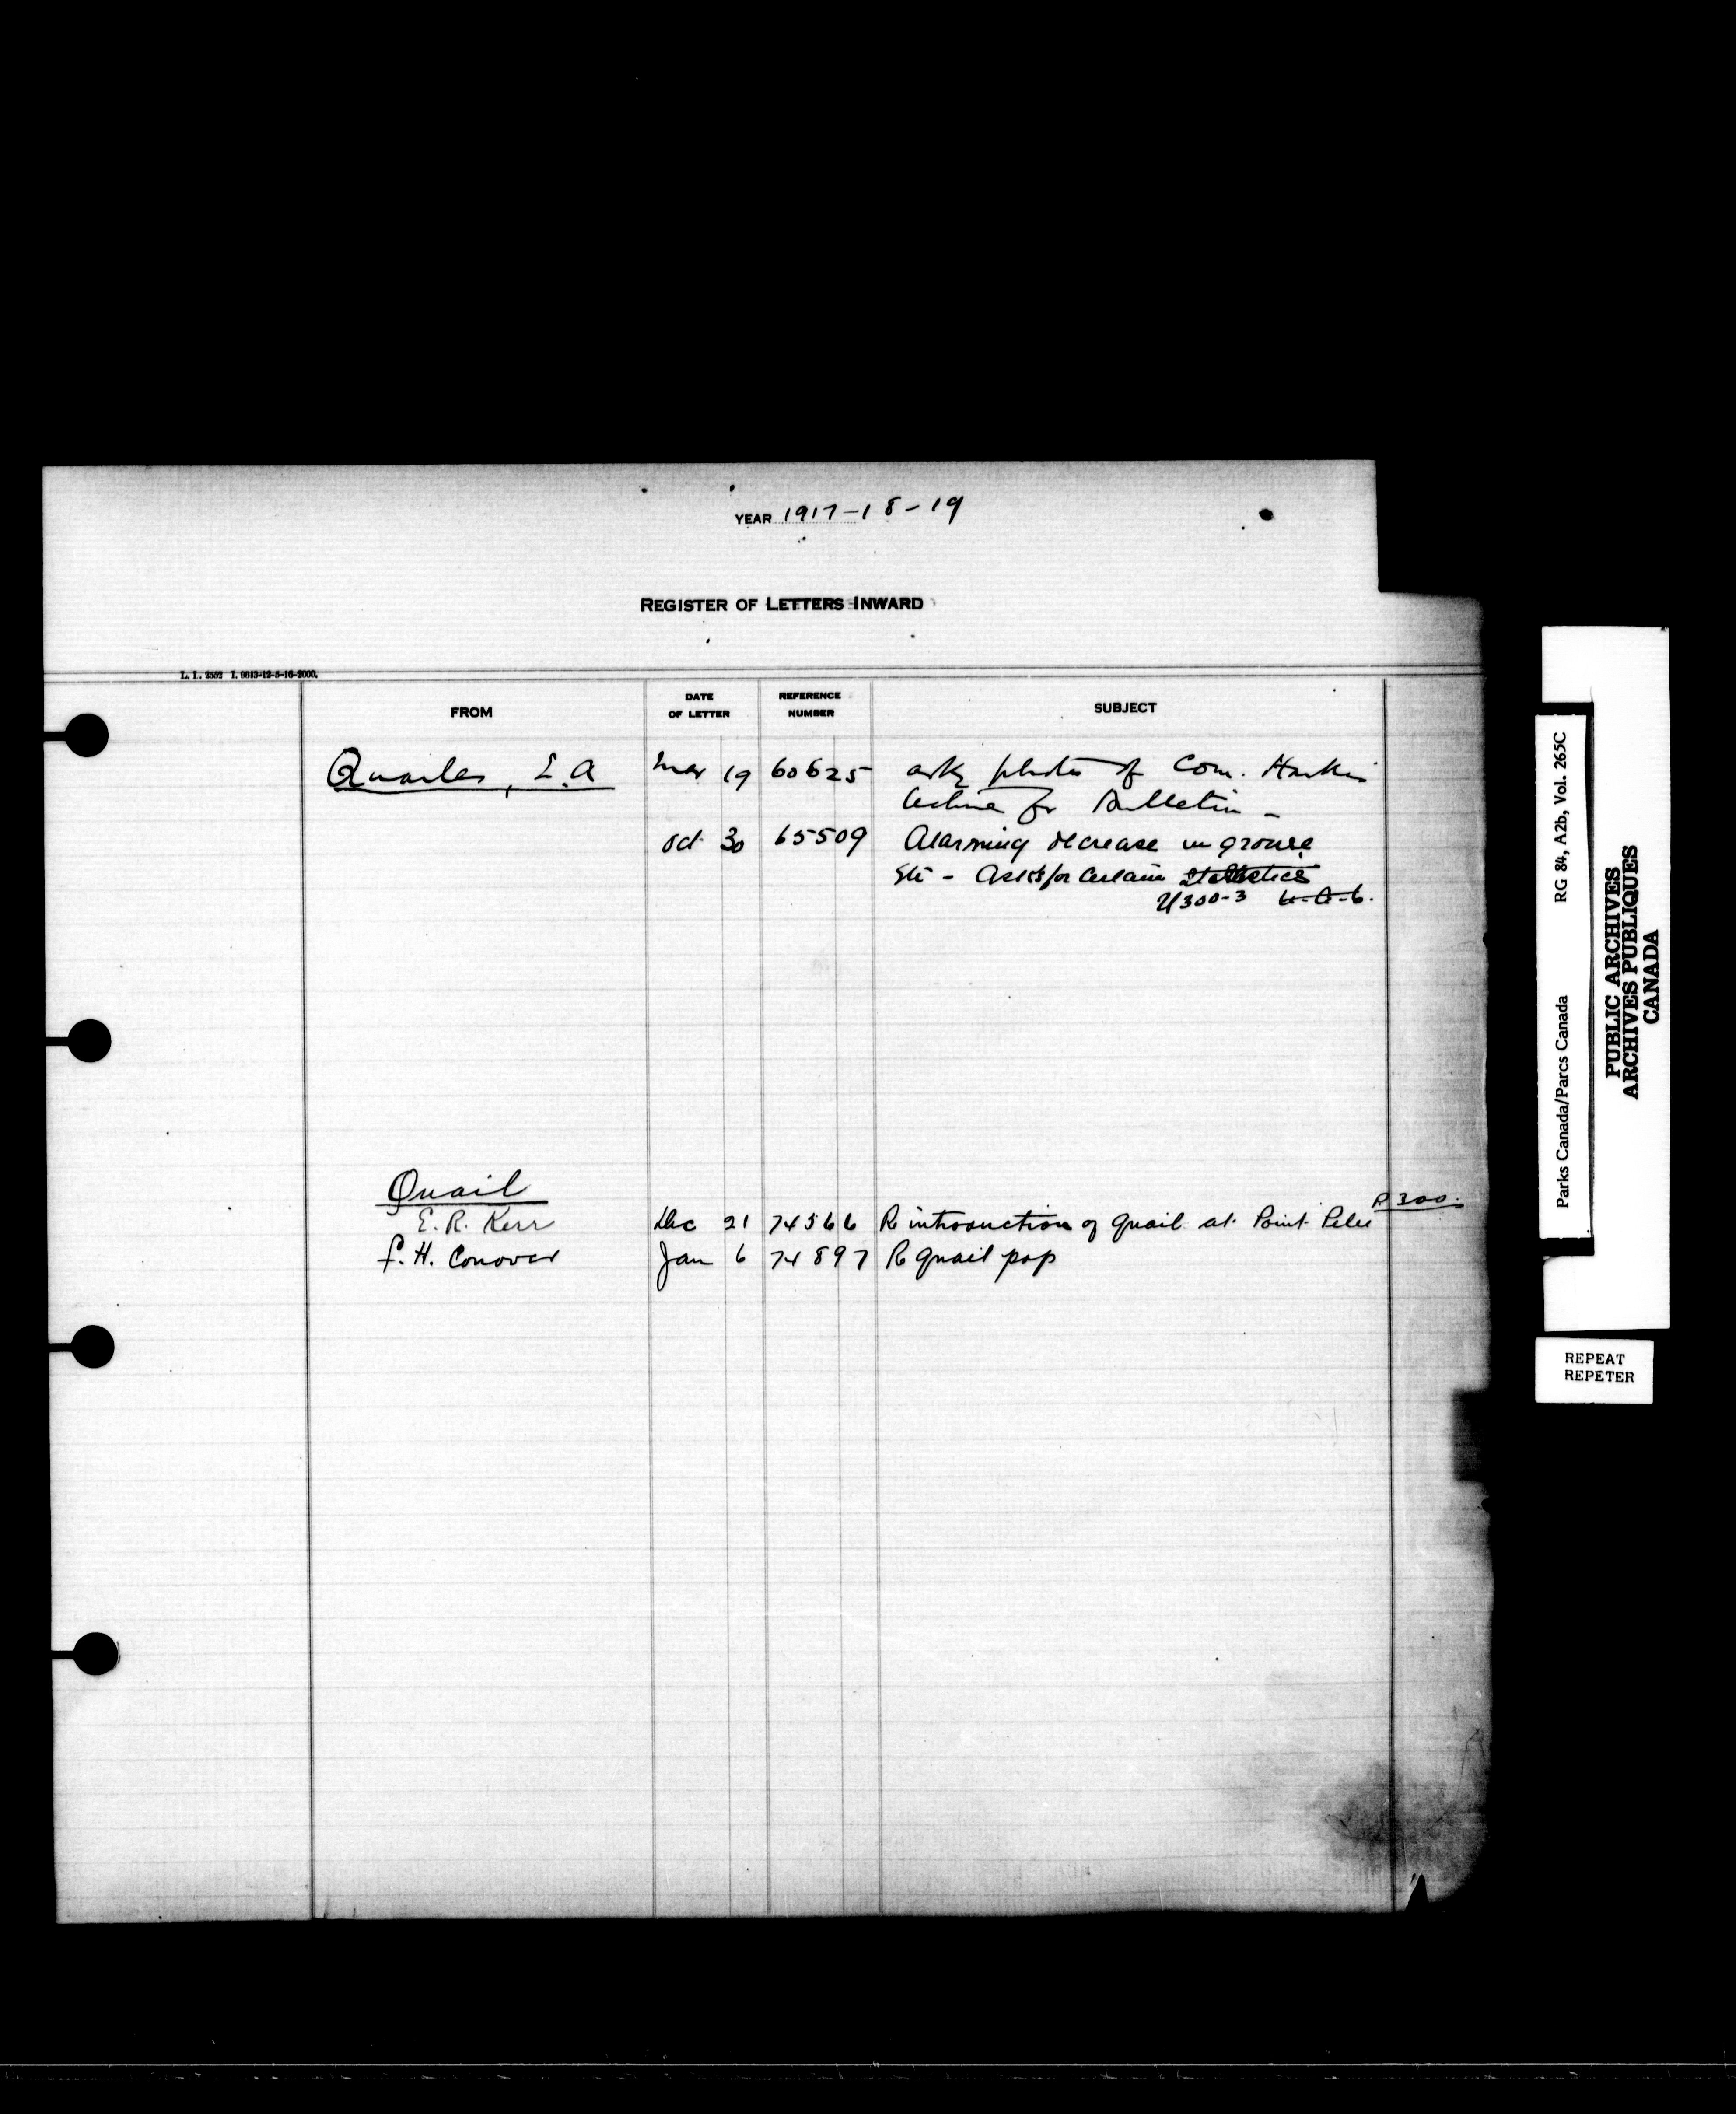 YEAR 1917-18-19
REGISTER OF LETTERS INWARD
L. I. 2552 I. 9613-12-5-16-2000.
FROM DATE OF LETTER REFERENCE NUMBER SUBJECT
Quarles, E.A Mar 19 60625 asks photos of Com. Harkin
lecture for Bulletin -
Oct 30 65509 Alarming decrease in grouse
Etc - Asks for certain statistics
U300-3
Quail
P300.
E. R. Kerr Dec 21 74566 Re introduction of quail at Point Pelee
F. H. Conover Jan 6 74897 Re quail pop
Parks Canada/Parcs Canada RG 84, A2b, Vol. 265C
PUBLIC ARCHIVES
ARCHIVES PUBLIQUES
CANADA
REPEAT
REPETER